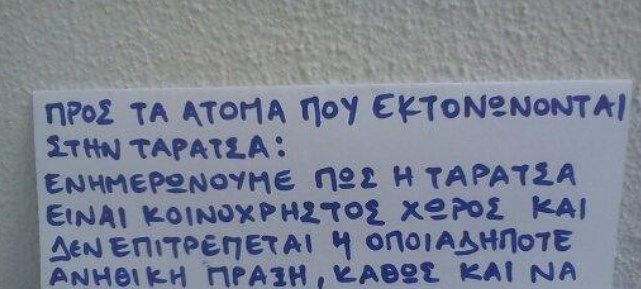 ΠΡΟΣ ΤΑ ΑΤΟΜΑ ΠΟΥ ΕΚΤΟΝΩΝΟΝΤΑΙ
ΣΤΗΝ ΤΑΡΑΤΣΑ:
ΕΝΗΜΕΡΩΝΟΥΜΕ ΠΩΣ Η ΤΑΡΑΤΣΑ
ΕΙΝΑΙ ΚΟΙΝΟΧΡΗΣΤΟΣ ΧΩΡΟΣ ΚΑΙ
ΔΕΝ ΕΠΙΤΡΕΠΕΤΑΙ Η ΟΠΟΙΑΔΗΠΟΤΕ
ΑΝΗΘΙΚΗ ΠΡΑΞΗ, ΚΑΘΩΣ ΚΑΙ ΝΑ